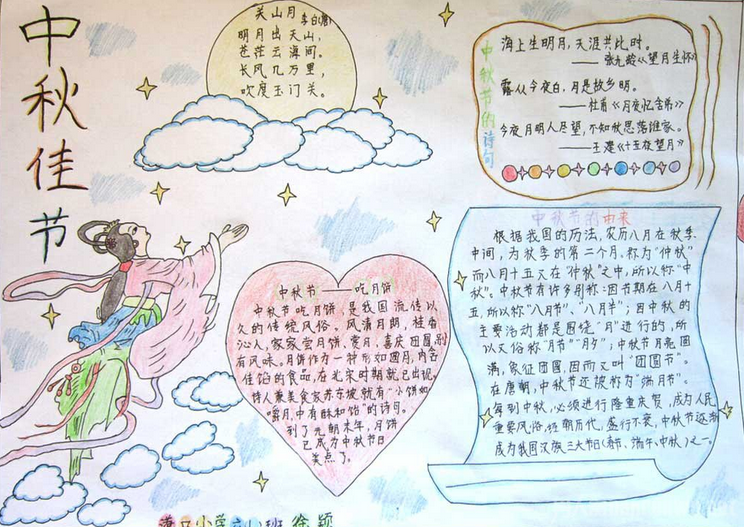 中秋佳节
关山月 李白(唐)
明月出天山，
苍茫云海间。
长风几万里，
吹度玉门关。
中秋节的诗句
海上生明月，天涯共此时。
——张九龄《望月生怀》
露从今夜白，月是故乡明。
——杜甫《月夜忆舍弟》
今夜月明人尽望，不知秋思落谁家。
——王建《十五夜望月》
中秋节——吃月饼
中秋节吃月饼，是我国流传以
久的传统风俗。风清月朗，桂香
沁人，家家尝月饼、赏月，喜庆团圆，别
有风味。月饼作为一种形如圆月、内含
佳馅的食品，在北宋时期就已出现。
诗人兼美食家苏东坡就有"小饼如
嚼月，中有酥和饴"的诗句。
到了元朝末年，月饼
已成为中秋节日
美点了。
中秋节的由来
根据我国的历法，农历八月在秋季
中间，为秋季的第二个月，称为"仲秋"
而八月十五又在"仲秋"之中，所以称"中
秋"。中秋节有许多别称：因节期在八月十
五，所以称"八月节"、"八月半"；因中秋的
主要活动都是围绕"月"进行的，所
以又俗称"月节""月夕"；中秋节月亮圆
满，象征团圆，因而又叫"团圆节"。
在唐朝，中秋节还被称为"端月节"。
每到中秋，必须进行隆重庆贺，成为人民
重要风俗，经朝历代，盛行不衰，中秋节还渐
成为我国汉族三大节日(春节、端午、中秋)之一。
小学六(1)班 徐颖